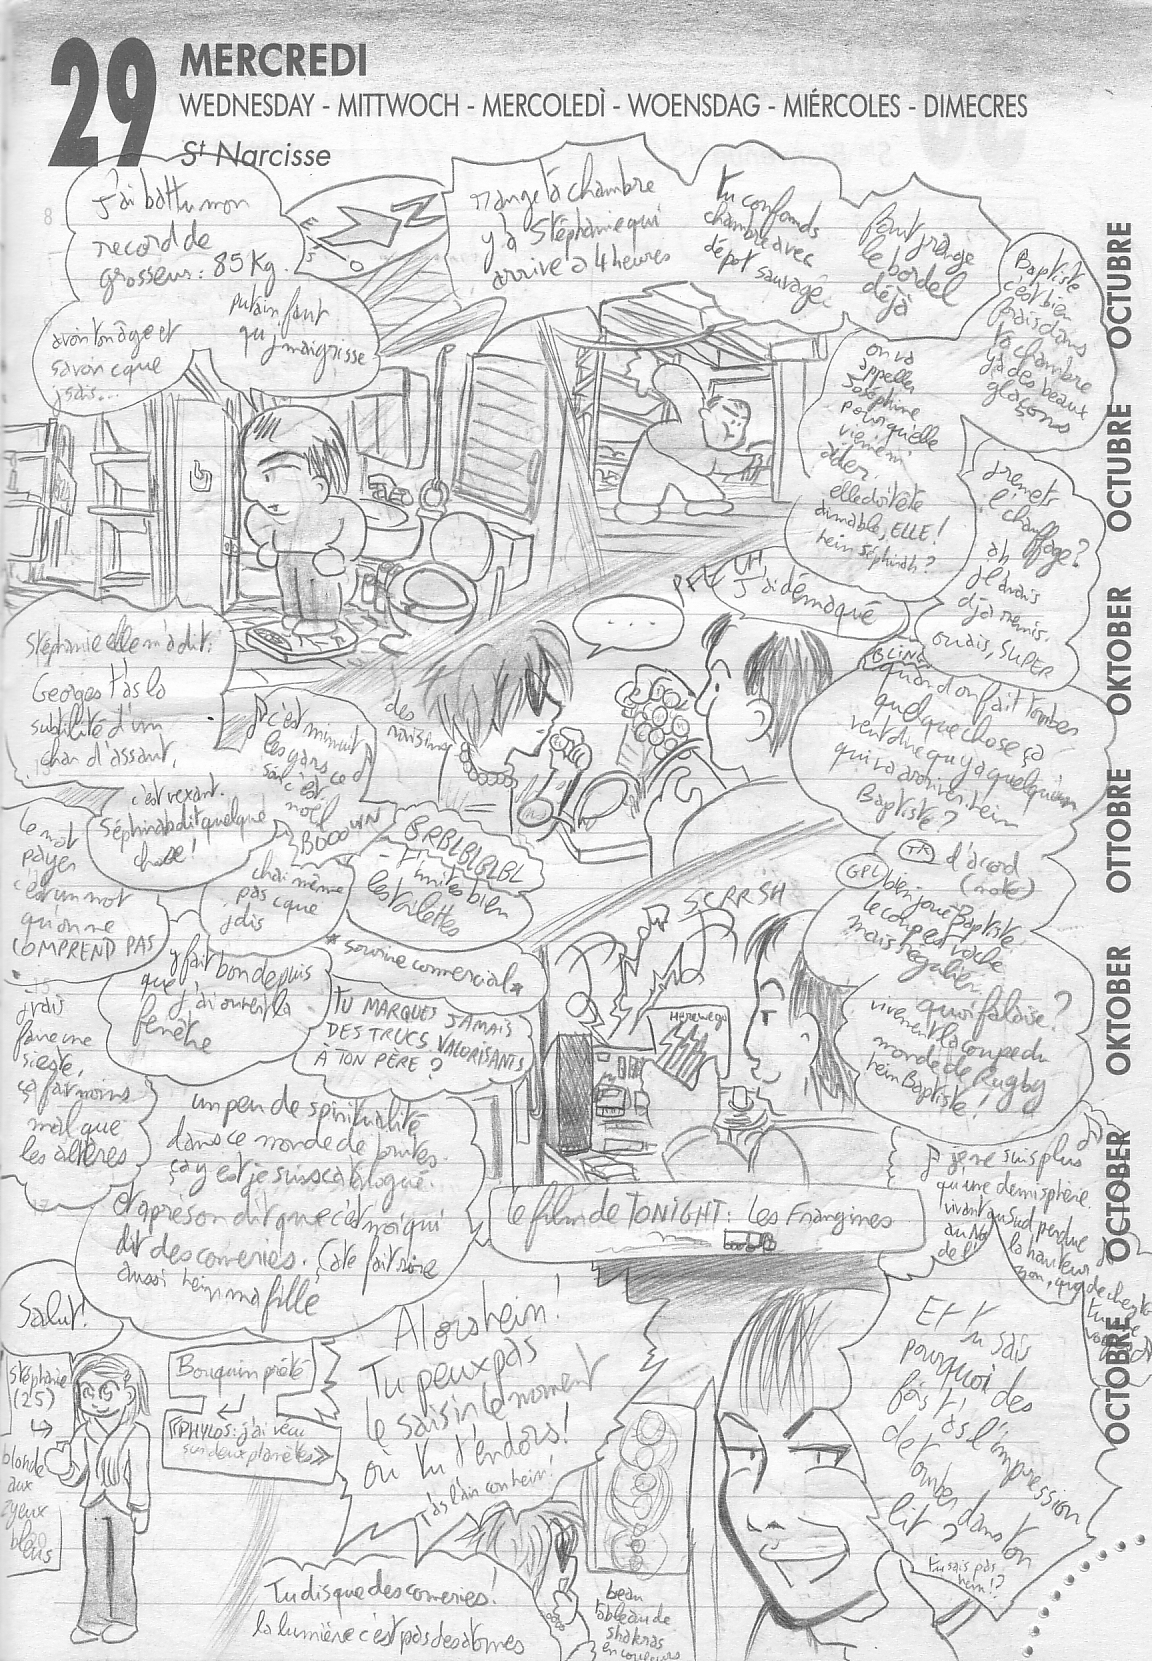 29
MERCREDI
WEDNESDAY - MITTWOCH - MERCOLEDÌ - WOENSDAG - MIÉRCOLES - DIMECRES
St Narcisse
J'ai battu mon
record de
grosseur : 85 Kg.
putain, faut
qu'j'maigrisse
avoir ton âge et
savoir c'que
j'sais...
N
E
S
O
range ta chambre
y'a Stéphanie qui
arrive à 4 heures
tu confonds
chambre avec
dépot sauvage
faut range
le bordel
déjà
Baptiste
c'est bien
frais dans
ta chambre
y'a des beaux
glaçons
on va
appeller
Joséphine
pour qu'elle
vienne m'
aider.
elle doit être
aimable, ELLE!
hein Séphirah?
j'remets
l'chauffage?
ah
j'l'avais
déjà remis.
ouais, SUPER
PFEUH
J'ai démaqué
....
Stéphanie elle m'a dit:
Georges t'as la
subtilité d'un
char d'assaut,
c'est vexant.
Séphirah dit quelque
chose!
c'est minuit
les gars ce
soir c'est
noël
BOOOWN
des
raisins
BLING
quand on fait tomber
quelque chose ça
veut dire qu'y a quelqu'un
qui va arriver. hein
Baptiste?
TK
d'acord
(note)
le mot
payer
c'est un mot
qu'on ne
COMPREND PAS
chai même
pas c'que
j'dis
BRBLBLBLBL
- t'imites bien
les toilettes
* sourire comercial *
SCRRSH
GPL
bien joué Baptiste
le coup est vache
mais régulier
quoi falaise?
vivement la coupe du
monde de Rugby
hein Baptiste!
y fait bon depuis
que j'ai ouvert la
fenêtre
TU MARQUES JAMAIS
DES TRUCS VALORISANTS
À TON PÈRE?
Herewego
j'vais
faire une
sieste,
ça fait moins
mal que
les altères
un peu de spiritualité
dans ce monde de brutes.
ça y est je suis catalogué.
et après on dit que c'est moi qui
dit des conneries. Ça te fait rire
aussi hein ma fille
le film de TONIGHT: Les Frangines
je ne suis plus
qu'une demi sphère
vivant au Sud perdue
au No
de l'
la hauteur
Salut!
Stéphanie
(25)
blonde
aux
yeux
bleus
Bouquin prêté
«PHYLOS: j'ai vécu
sur deux planètes»
Alors hein!
Tu peux pas
le saisir le moment
où tu t'endors!
t'as l'air con hein!
Et tu sais
pourquoi des
fois t'as l'impression
de tomber dans ton
lit?
tu sais pas
hein!?
Tu dis que des conneries!
la lumière c'est pas des atomes
beau
tableau de
shakras
en couleurs
OCTOBRE OCTOBER OKTOBER OTTOBRE OKTOBER OCTUBRE OCTUBRE